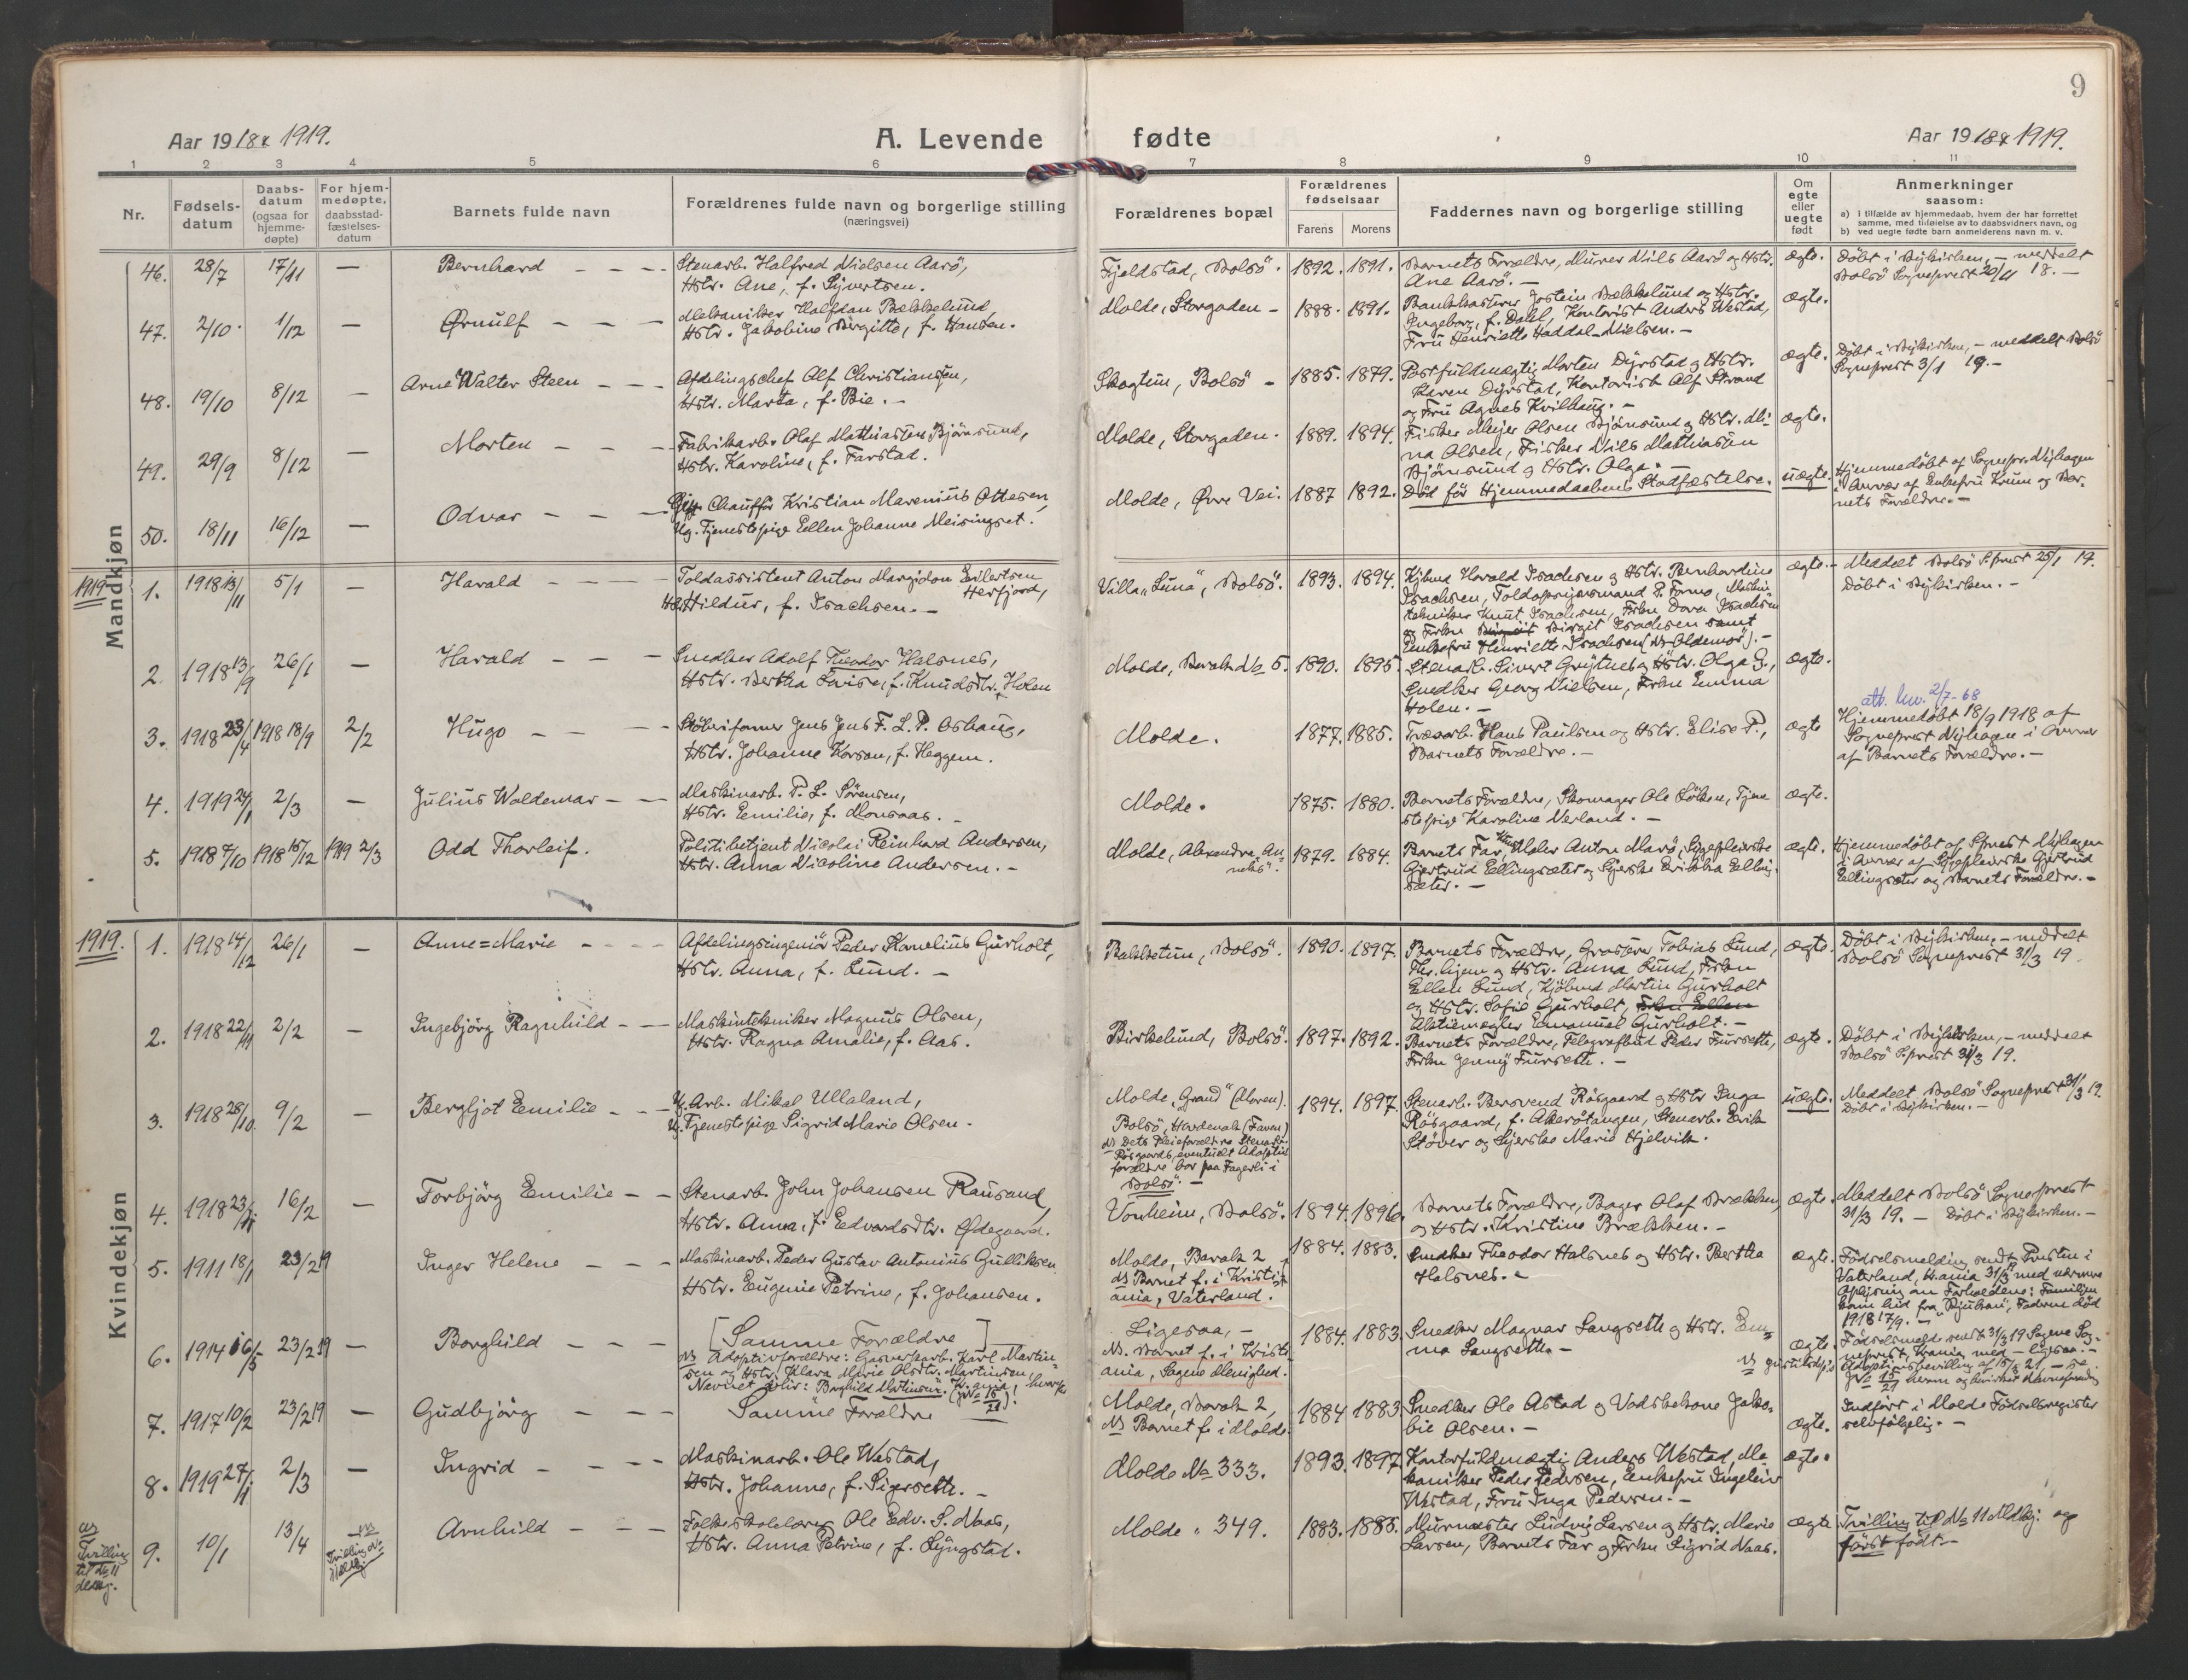 9
Aar 1918 & 1919.
A. Levende
fødte
Aar 1918 & 1919.
1 2 3 4 5 6 7 8 9 10 11
Nr.
Fødsels-
datum
Daabs-
datum
(ogsaa for
hjemme-
døpte)
For hjem-
medøpte,
daabsstad-
fæstelses-
datum
Barnets fulde navn
Forældrenes fulde navn og borgerlige stilling
(næringsvei)
Forældrenes bopæl
Forældrenes
fødselsaar
Farens
Morens
Faddernes navn og borgerlige stilling
Om
egte
eller
uegte
født
Anmerkninger
saasom:
a) i tilfælde av hjemmedaab, hvem der har forrettet
samme, med tilføielse av to daabsvidners navn, og
b) ved uegte fødte barn anmelderens navn m. v.
Mandkjøn
46. 28/7 17/11 — Bernhard - - -
Stenarb. Halfred Nielsen Aarö,
Hstr. Ane, f. Sivertsen.
Fjeldstad, Bolsö. 1892. 1891.
Barnets Forældre, Murer Nils Aarö og Hstr.
Ane Aarö. —
ægte.
Döbt i Nykirken, — meddelt
Bolsö Sogneprest 20/11 18. —
47. 2/10. 1/12 — Ørnulf - - -
Mekaniker Halfdan Bækkelund,
Hstr. Jakobine Birgitte, f. Hansen.
Molde, Storgaden - 1888. 1891.
Bankkasserer Jostein Bækkelund og Hstr.
Ingeborg, f. Dahl, Kontorist Anders Westad,
Fru Henriette Haddal-Nielsen. —
ægte.
48. 19/10 8/12 — Arne Walter Steen - - -
Afdelingschef Alf Christiansen,
Hstr. Marta, f. Bie. —
Skogtun, Bolsö - 1885. 1879.
Postfuldmægtig Morten Dyrstad og Hstr.
Karen Dyrstad, Kontorist Alf Strand
og Fru Agnes Kvilhaug. —
ægte.
Döbt i Nykirken, — meddelt Bolsö
Sogneprest 3/1 19. —
49. 29/9 8/12 — Morten - - -
Fabrikarb. Olaf Mathiassen Björnsund,
Hstr. Karoline, f. Farstad.
Molde, Storgaden. 1889. 1894.
Fisker Meyer Olsen Björnsund og Hstr. Mi-
na Olsen, Fisker Nils Mathiassen
Björnsund og Hstr. Olga. —
ægte.
50. 18/11 16/12 — Odvar - - -
Gift Chaufför Kristian Marenius Ottesen,
Ug. Tjenestepige Ellen Johanne Meisingset.
Molde, Övre Vei. 1887 1892.
Död för Hjemmedaabens Stadfæstelse.
uægte.
Hjemmedöbt af Sognepr. Nyhagen
i Nærvær af Enkefru Krum og Bar-
nets Forældre. —
1919
1. 1918 13/11 5/1 — Harald - - -
Toldassistent Anton Margidon Eilertsen
Herfjord,
Hstr. Hildur, f. Isachsen. —
Villa "Luna", Bolsö. 1893. 1894.
Kjbmd Harald Isachsen og Hstr. Bernhardine
Isachsen, Toldopsynsmand P. Formo, Maskin-
tekniker Knut Isachsen, Frkn Dora Isachsen
og Frkn Birgit Isachsen samt
Enkefru Henriette Isachsen (NB Oldemor). —
ægte. —
Meddelt Bolsö S.prest 25/1 19.
Döbt i Nykirken. —
2. 1918 13/9 26/1 — Harald - - -
Snedker Adolf Theodor Halsnes,
Hstr. Bertha Lovise, f. Knudsdtr. Holen
Molde, Barak No 5. 1890. 1895.
Stenarb. Sivert Grytnes og Hstr. Olga G.,
Snedker Georg Nielsen, Frkn Emma
Holen. —
ægte.
3. 1918 23/4 1918 18/9 2/2 Hugo - - -
Jens F. L. P. Oshaug,
Hstr. Johanne Korson, f. Heggem.
Molde. 1877. 1885.
Træarb. Hans Paulsen og Hstr. Elise P.,
Barnets Forældre. —
ægte
att. utv. 2/7-68
Hjemmedöbt 18/9 1918 af
Sogneprest Nyhagen i Nærvær
af Barnets Forældre. —
4. 1919 24/1 2/3 — Julius Waldemar - -
Maskinarb. P. L. Sörensen,
Hstr. Emilie, f. Monsaas. —
Molde. 1875. 1880.
Barnets Forældre, Skomager Ole Löken, Tjene-
stepige Karoline Nerland. —
ægte.
5. 1918 4/10 1918 15/12 1919 2/3 Odd Thorleif.
Politibetjent Nicolai Reinhard Andersen,
Hstr. Anna Nicoline Andersen. —
Molde, Alexandra An-
neks". 1879. 1884.
Barnets Far, Maler Anton Aarö, Sygepleierske
Gjertrud Ellingsæter og Syerske Erikka Elling-
sæter. —
ægte.
Hjemmedöbt af S.prest Nyhagen
i Nærvær af Sygepleierske Gjertrud
Ellingsæter og Barnets Forældre. —
1919.
Kvindekjøn
1. 1918 14/12 26/1 — Anne=Marie - - -
Afdelingsingeniör Peder Kornelius Gurholt,
Hstr. Anna, f. Lund. —
Bakketun, Bolsö. 1890. 1897.
Barnets Forældre, Grosserer Tobias Lund,
Th.hjem og Hstr. Anna Lund, Frkn
Ellen Lund, Kjöbmd Martin Gurholt
og Hstr. Sofie Gurholt, Frkn Ellen
Aktiemægler Emanuel Gurholt. —
ægte.
Döbt i Nykirken, — meddelt
Bolsö Sogneprest 31/3 19.
2. 1918 22/11 2/2 — Ingebjörg Ragnhild - -
Maskintekniker Magnus Olsen,
Hstr. Ragna Amalie, f. Aas.
Birkelund, Bolsö. 1897. 1892.
Barnets Forældre, Telegrafbud Peder Fursseth,
Frkn Jenny Fursseth. —
ægte.
Döbt i Nykirken, — meddelt
Bolsö S.prest 31/3 19.
3. 1918 28/10 9/2 — Bergljot Emilie - - -
Ug. Arb. Mikal Ullaland,
Ug. Tjenestepige Sigrid Marie Olsen.
Molde, "Grand" (Moren).
Bolsö, (Faren)
NB Dets Pleieforældre Stenarb.
Rösgaards, eventuelt Adoptiv-
forældre bor paa Fagerli i
Bolsö. —
1894. 1897.
Stenarb. Bersvend Rösgaard og Hstr Inga
Rösgaard, f. Akerötangen, Stenarb. Erik
Stöver og Syerske Marie Hjelvik.
uægte.
Meddelt Bolsö Sogneprest 31/3 19.
Döbt i Nykirken. —
4. 1918 23/11. 16/2 — Torbjörg Emilie - -
Stenarb. John Johansen Rausand,
Hstr. Anna, f. Edvardsdtr. Ödegaard.
Vonheim, Bolsö. 1894. 1896.
Barnets Forældre, Bager Olaf Brækken,
og Hstr. Kristine Brækken. —
ægte.
Meddelt Bolsö Sogneprest
31/3 19. — Döbt i Nykirken. —
5. 1911 18/1 23/2 19 Inger Helene - - -
Maskinarb. Peder Gustav Antonius Gulliksen
Hstr. Eugenie Petrine, f. Johansen.
Molde, Barak 2
NB Barnet f. i Kristi-
ania, Vaterland.
1884. 1883.
Snedker Theodor Halsnes og Hstr. Bertha
Halsnes. —
ægte.
Födselsmelding sendt Presten i
Vaterland, Kr.ania 31/3 med nærmere
Oplysning om Forholdene: Familjen
kom hid fra "Rjukan", Faderen död
1918 17/9. —
6. 1914 16/5 23/2 19 — Borghild - - -
[Samme Forældre]
NB Adoptivforældre: Gasverksarb. Karl Martin-
sen og Hstr. Klara Marie Olsdtr. Martinsen,
Navnet blir: Borghild Martinsen. Kr.ania,
Ligesaa, —
NB. Barnet f. i Kristi-
ania, Sagene Menighed.
1884. 1883
Snedker Magnar Langseth og Hstr. Em-
ma Langseth. —
ægte.
Födselsmeld. sendt 31/3 19 Sagene Sog-
neprest, Kr.ania, med — ligesaa. —
Adoptionsbevilling af 15/3 21, —
7. 1917 10/2 23/2 19 — Gudbjörg - - -
Samme Forældre
Molde, Barak 2,
NB Barnet f. i Molde.
1884 1883
Snedker Ole Astad og Vadskekone Jako-
bie Olsen. —
ægte.
Indfört i Molde Födselsregister
selvfölgelig. —
8. 1919 27/1 2/3 — Ingrid - - - -
Maskinarb. Ole Westad,
Hstr. Johanne, f. Sigerseth. —
Molde No 333. 1893. 1897
Kontorfuldmægtig Anders Westad, Me-
kaniker Peder Pedersen, Enkefru Ingeleiv
Westad, Fru Inga Pedersen. —
ægte.
NB
Tvilling
til No 11
9. 10/1 13/4
NB
Tvilling No
11 Mkj.
Arnhild - - -
Folkeskolelærer Ole Edv. S. Naas,
Hstr. Anna Petrine, f. Lyngstad.
Molde " 349. 1883. 1885.
Murmester Ludvig Larsen og Hstr. Marie
Larsen, Barnets Far og Frkn Sigrid Naas.
ægte
Tvilling til No 11 Mkj. og
först födt. —